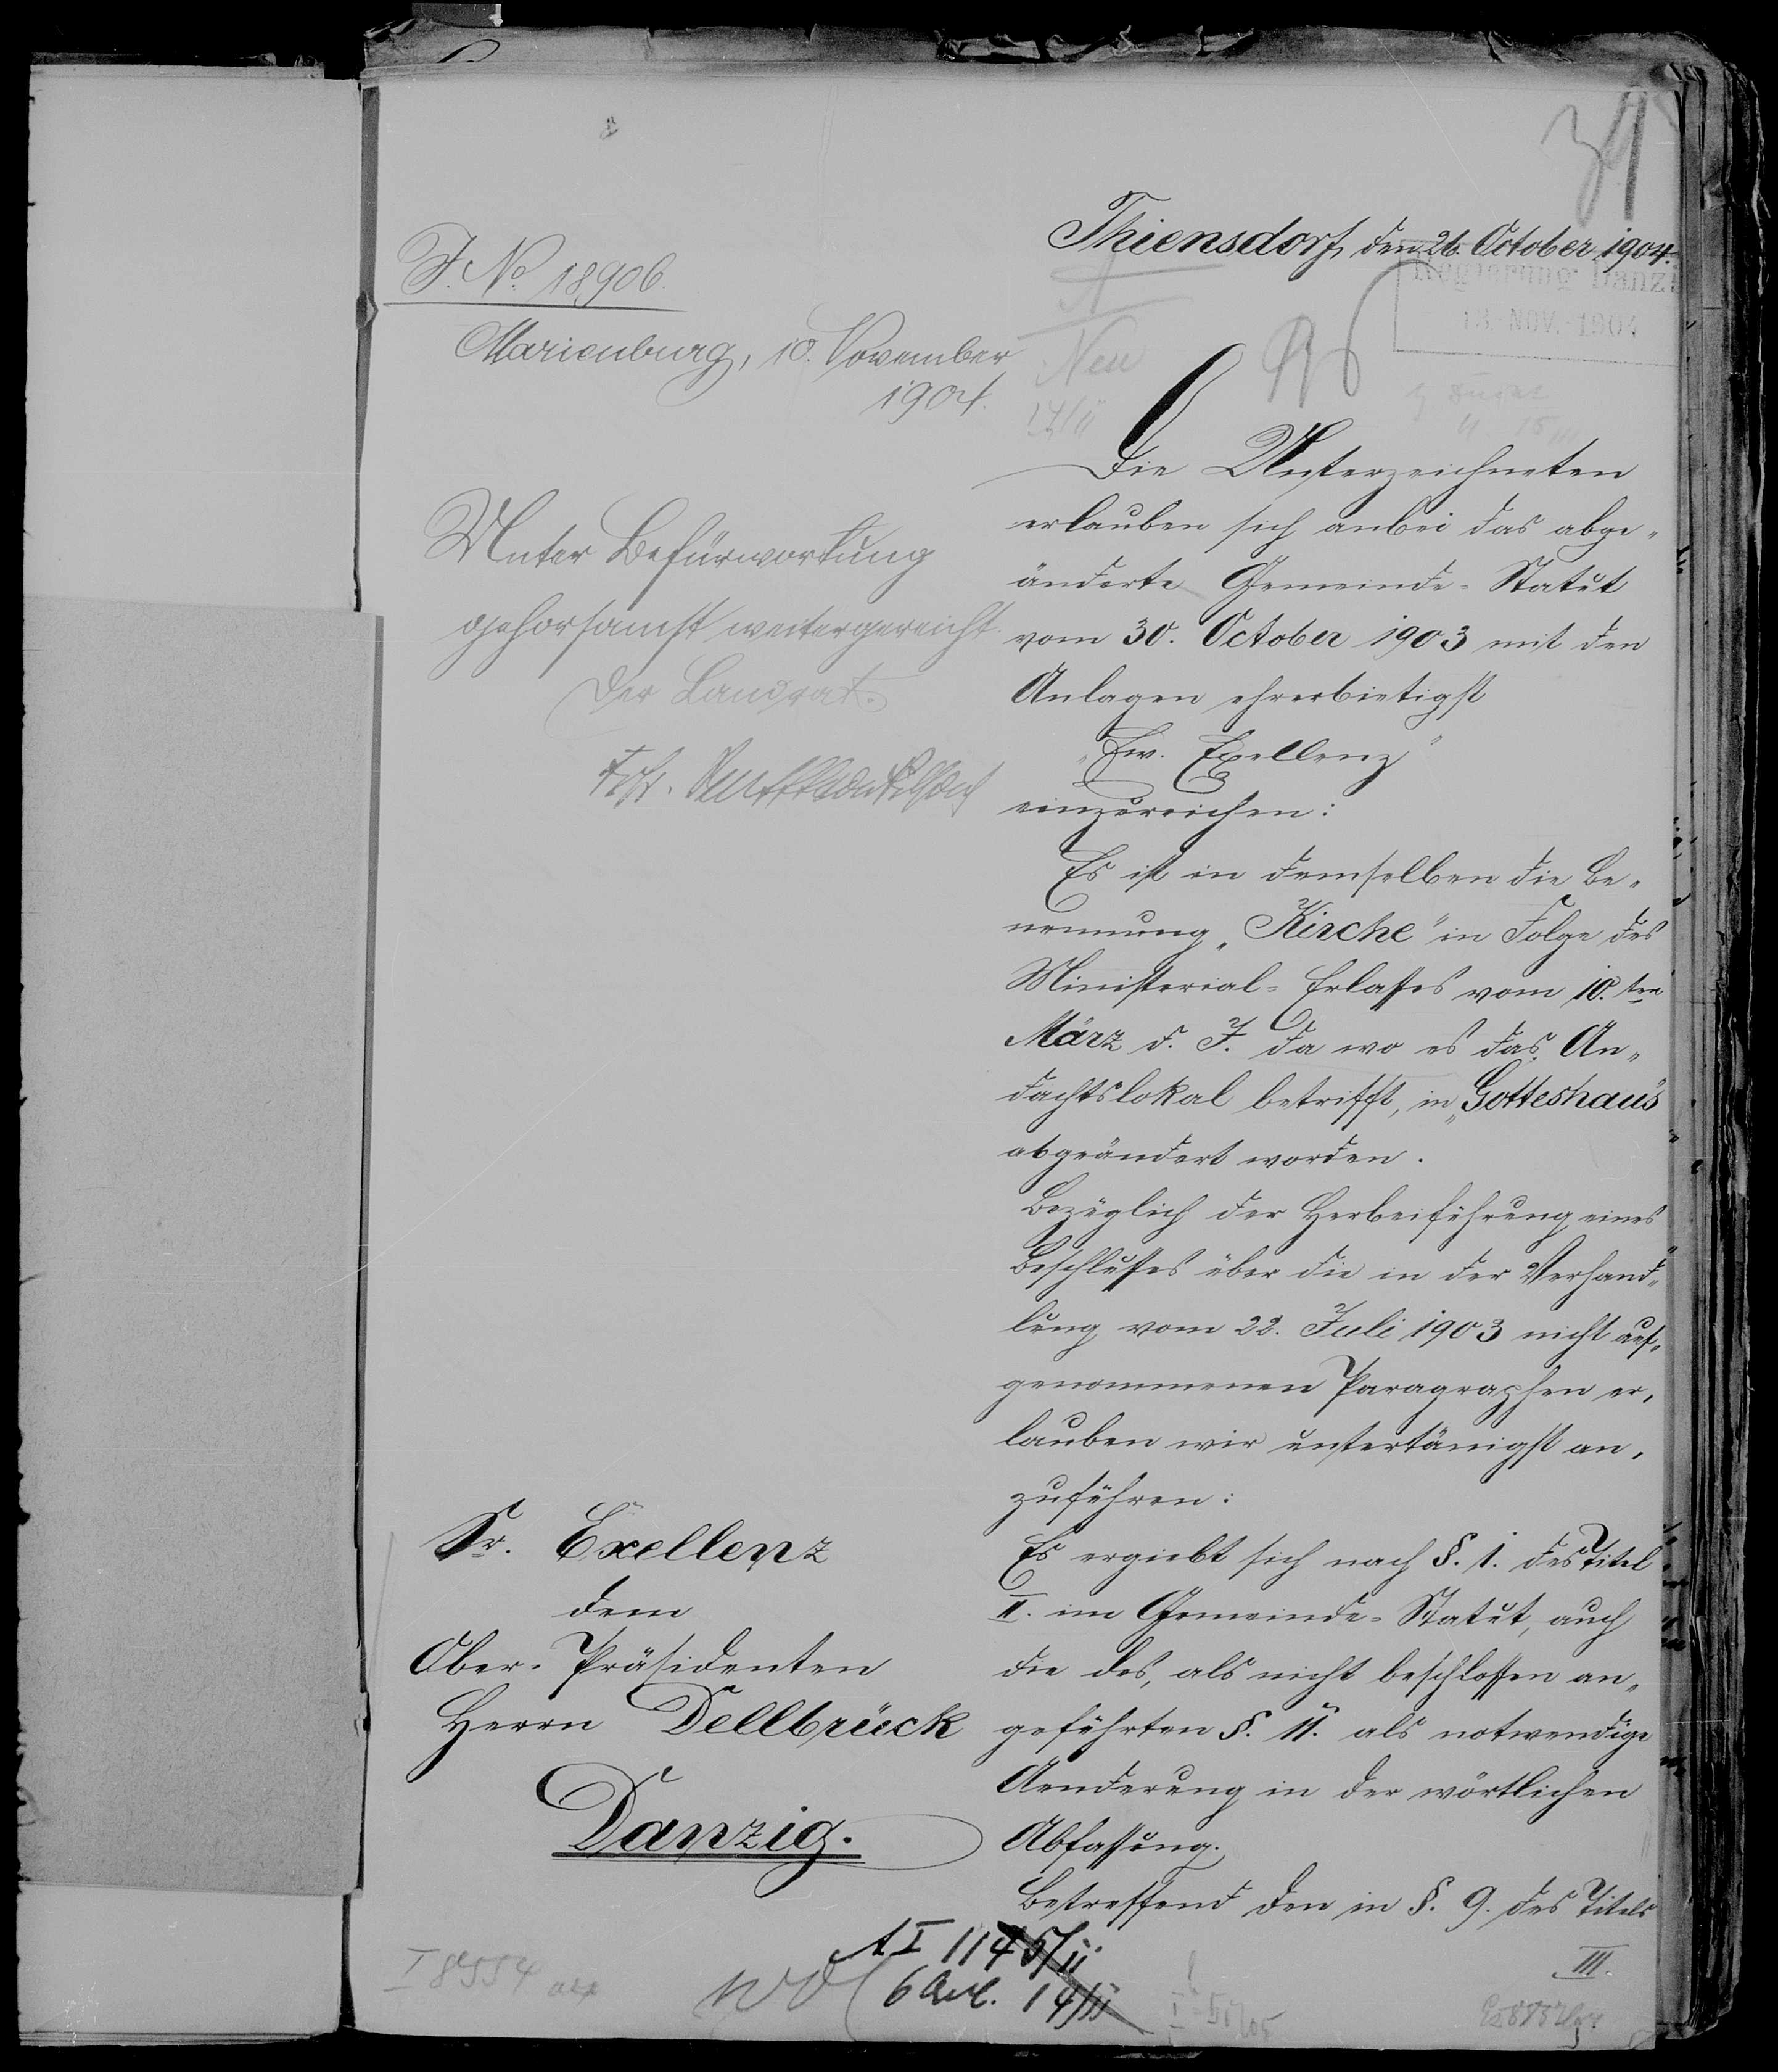 34
Thiensdorf, den 26. October 1904.
Regierung Danzi
13. NOV. 1904
J. No. 18906.
Marienburg, 10. November
1904.
Neu
Unter Befürwortung
gehorsamst weitergereicht.
Der Landrat.
Die Unterzeichneten
erlauben sich anbei das abge-
änderte Gemeinde-Statut
vom 30. October 1903 mit den
Anlagen ehrerbietigst
„Ew. Exellenz“
einzureichen:
Es ist in demselben die Be-
nennung „Kirche“ in Folge des
Ministerial-Erlasses vom 10.ten
März d. J. da wo es das An-
dachtslokal betrifft, in „Gotteshaus“
abgeändert worden.
Bezüglich der Herbeiführung eines
Beschlusses über die in der Verhand-
lung vom 22. Juli 1903 nicht auf-
genommenen Paragraphen er-
lauben wir untertänigst an-
zuführen:
Es ergiebt sich nach §. 1. des Titel
II. im Gemeinde-Statut, auch
die des, als nicht beschlossen an-
geführten §. 11. als notwendige
Aenderung in der wörtlichen
Abfassung.
Betreffend den in §. 9. des Titels
III.
Sr. Exellenz
dem
Ober-Präsidenten
Herrn Dellbrück
Danzig.
A I 1145/11
6 Anl. 14/11
I 8554